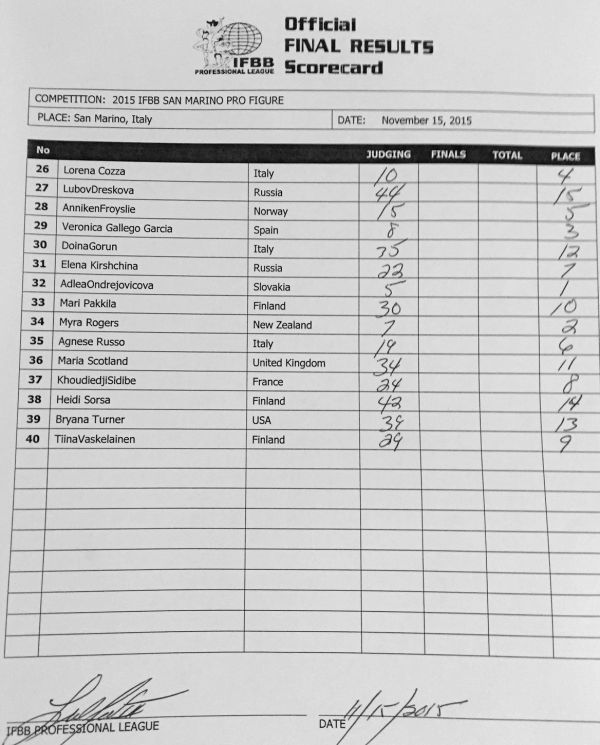 Official
FINAL RESULTS
Scorecard
IFBB
PROFESSIONAL LEAGUE
COMPETITION: 2015 IFBB SAN MARINO PRO FIGURE
PLACE: San Marino, Italy DATE: November 15, 2015
No JUDGING FINALS TOTAL PLACE
26 Lorena Cozza Italy 10 4
27 LubovDreskova Russia 44 15
28 AnnikenFroyslie Norway 15 5
29 Veronica Gallego Garcia Spain 8 3
30 DoinaGorun Italy 35 12
31 Elena Kirshchina Russia 22 7
32 AdleaOndrejovicova Slovakia 5 1
33 Mari Pakkila Finland 30 10
34 Myra Rogers New Zealand 7 2
35 Agnese Russo Italy 19 6
36 Maria Scotland United Kingdom 34 11
37 KhoudiedjiSidibe France 24 8
38 Heidi Sorsa Finland 42 14
39 Bryana Turner USA 39 13
40 TiinaVaskelainen Finland 29 9
IFBB PROFESSIONAL LEAGUE DATE 11/15/2015